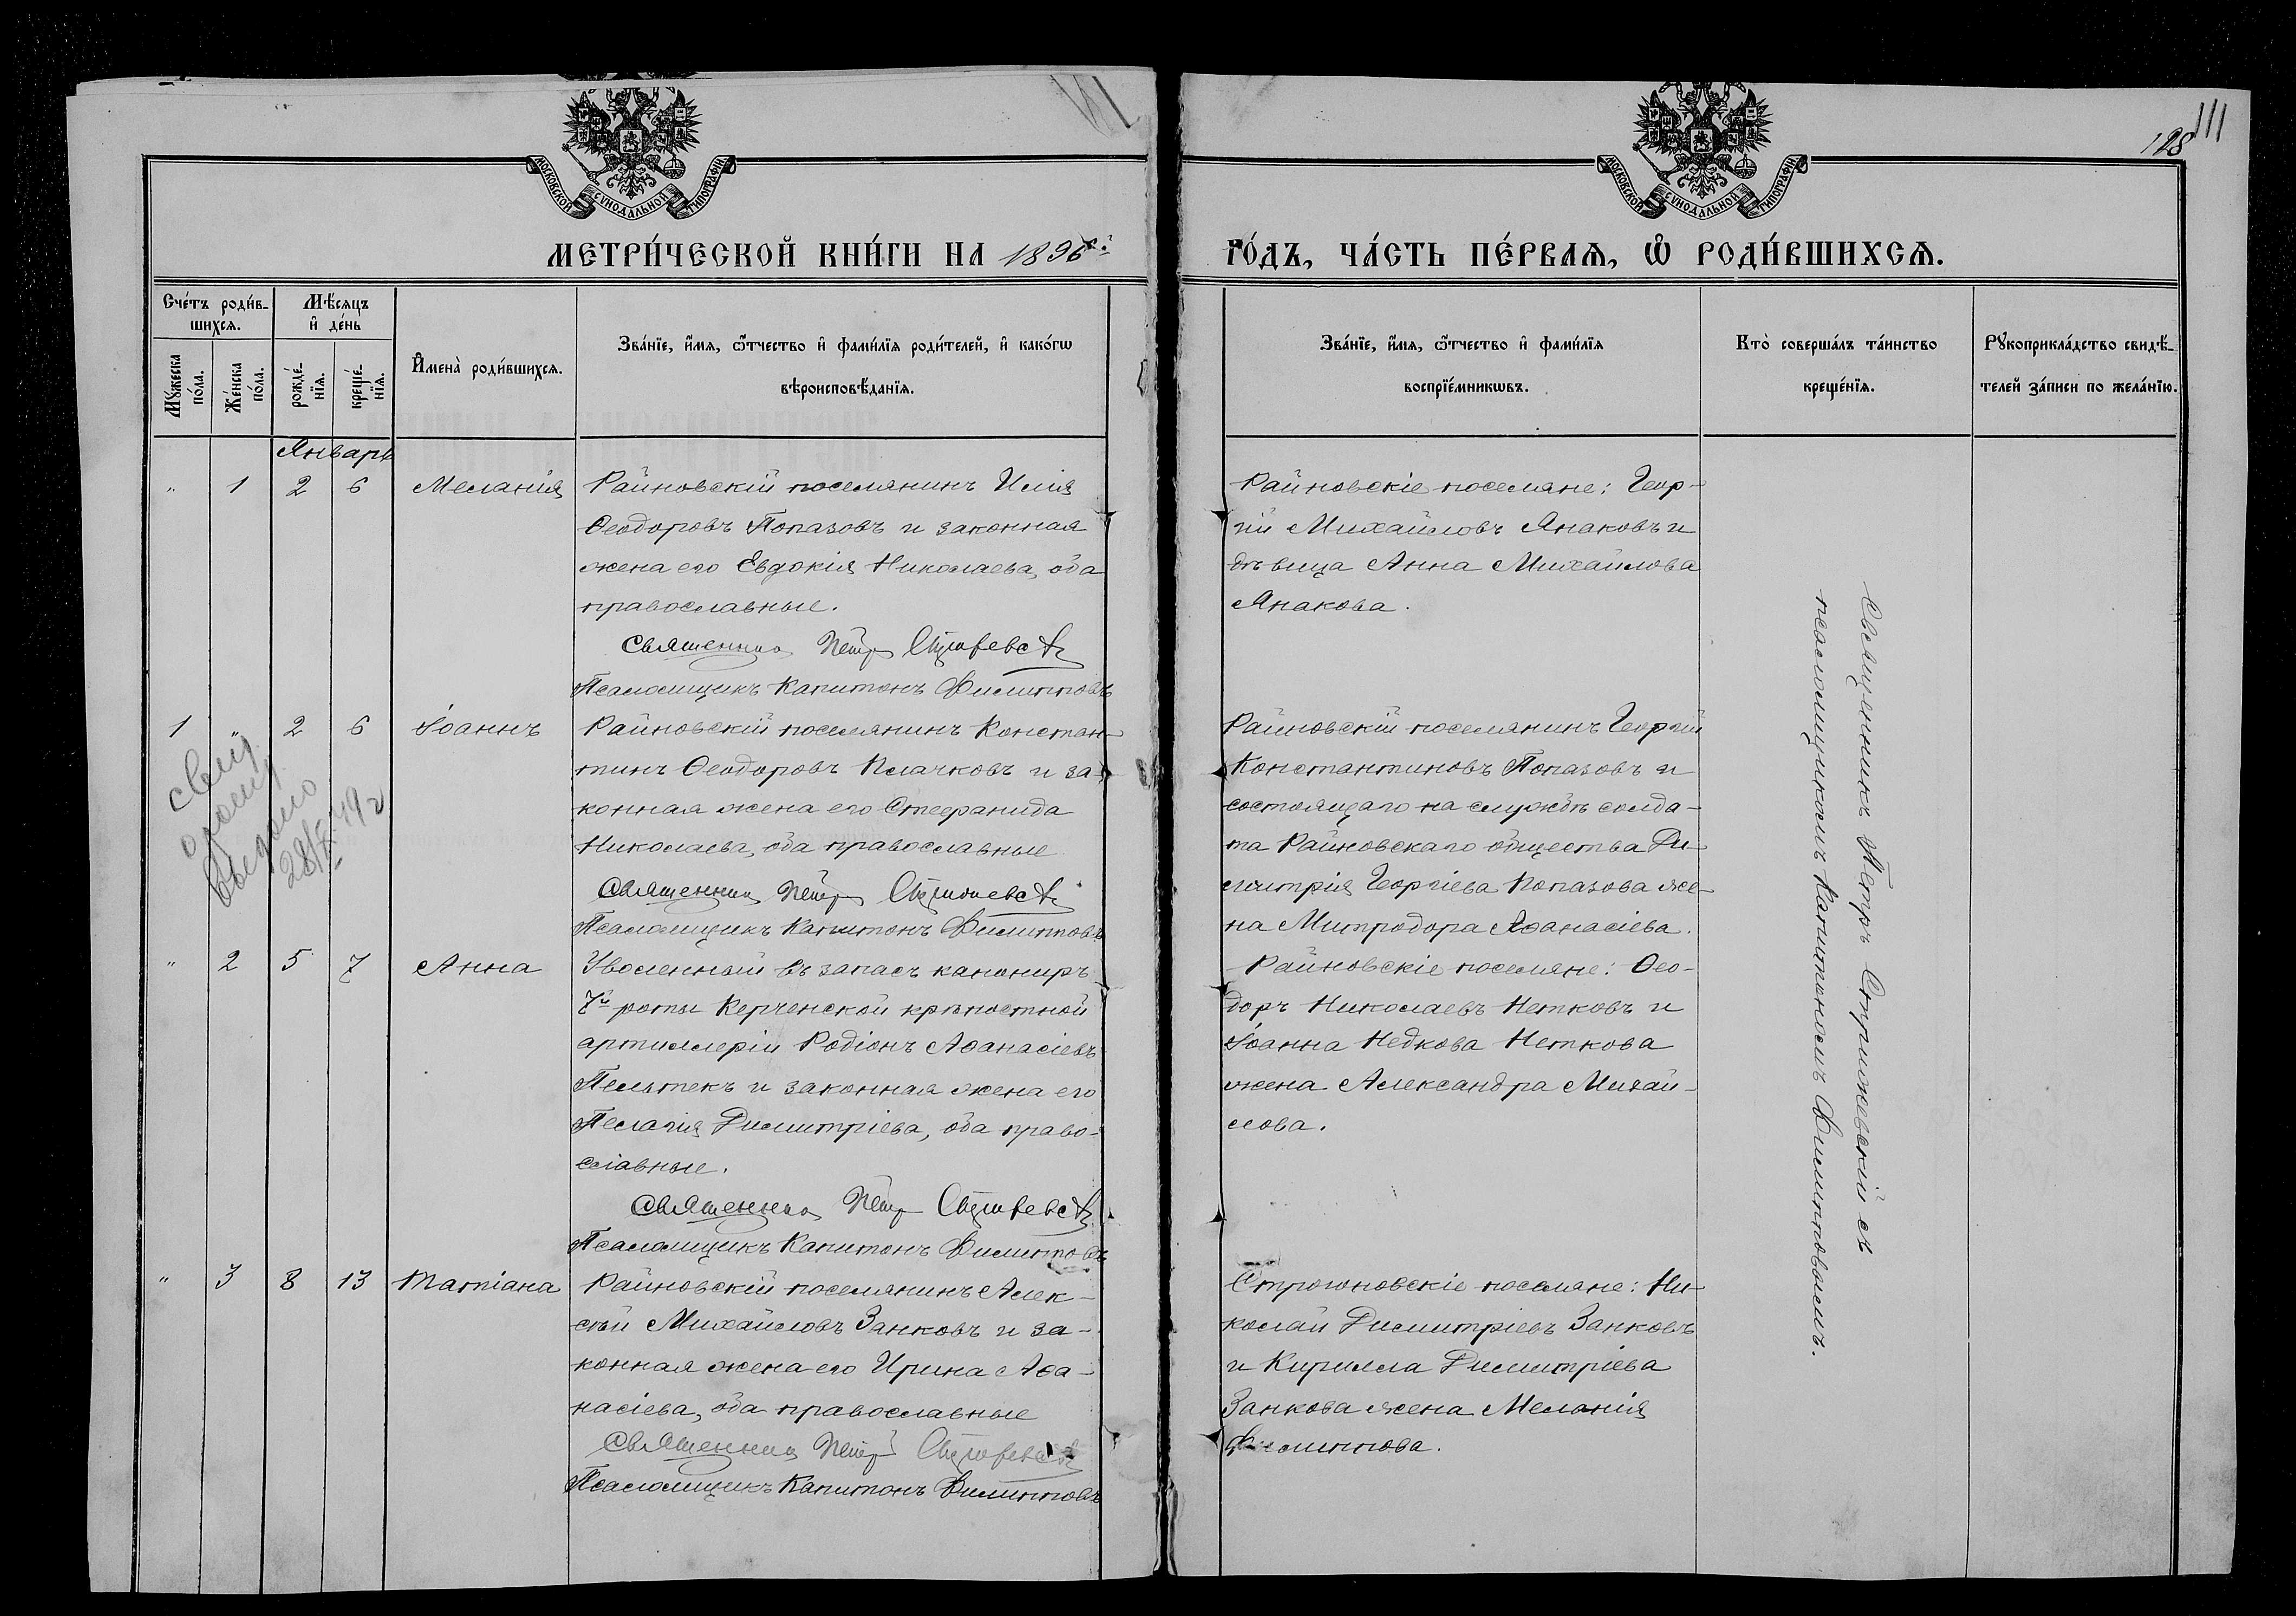 111
128
МОСКОВСКОЙ СѴНОДАЛЬНОЙ ТИПОГРАФІИ
МОСКОВСКОЙ СѴНОДАЛЬНОЙ ТИПОГРАФІИ
МЕТРИ́ЧЕСКОЙ КНИ́ГИ НА 1896й
ГО́ДЪ, ЧА́СТЬ ПЕ́РВАѦ, Ѡ҆ РОДИ́ВШИХСѦ.
Сче́тъ роди́в-
шихсѧ.
Мѣ́сяцъ
и҆ де́нь
Мꙋ́жеска
по́ла.
Же́нска
по́ла.
рожде́-
нїѧ.
креще́-
нїѧ.
И҆мена̀ роди́вшихсѧ.
Зва́нїе, и҆́мѧ, ѻ҆́тчество и҆ фами́лїѧ роди́телей, и҆ како́гѡ
вѣроисповѣ́данїѧ.
Зва́нїе, и҆́мѧ, ѻ҆́тчество и҆ фами́лїѧ
воспрїе́мникѡвъ.
Кто̀ соверша́лъ та́инство
креще́нїѧ.
Рꙋкоприкла́дство свидѣ́-
телей за́писи по жела́нїю.
Январь
" 1 2 6 Меланія
Райновскій поселянинъ Илія
Ѳеодоровъ Попазовъ и законная
жена его Евдокія Николаева, оба
православные.
Священникъ Петръ Стрижевскій
Псаломщикъ Капитонъ Филипповъ
Райновскіе поселяне: Геор-
гій Михайловъ Янаковъ и
дѣвица Анна Михайлова
Янакова.
1 " 2 6 Іоаннъ
Райновскій поселянинъ Констан-
тинъ Ѳеодоровъ Плачковъ и за-
конная жена его Стефанида
Николаева, оба православные
Священникъ Петръ Стрижевскій
Псаломщикъ Капитонъ Филипповъ
Райновскій поселянинъ Георгій
Константиновъ Попазовъ и
состоящаго на службѣ солда-
та Райновскаго общества Ди-
митрія Георгіева Попазова же-
на Митродора Аѳанасіева.
выдано
" 2 5 7 Анна
Уволенный въ запасъ канониръ
7й роты Керченской крѣпостной
артиллеріи Родіонъ Аѳанасіевъ
Пельтекъ и законная жена его
Пелагія Димитріева, оба право-
славные.
Священникъ Петръ Стрижевскій
Псаломщикъ Капитонъ Филипповъ
Райновскіе поселяне: Ѳео-
доръ Николаевъ Нетковъ и
Іоанна Недкова Неткова
жена Александра Михай-
лова.
" 3 8 13 Татіана
Райновскій поселянинъ Алек-
сѣй Михайловъ Занковъ и за-
конная жена его Ирина Аѳа-
насіева, оба православные
Священникъ Петръ Стрижевскій
Псаломщикъ Капитонъ Филипповъ
Строгоновскіе поселяне: Ни-
колай Димитріевъ Занковъ
и Кирилла Димитріева
Занкова жена Меланія
Филиппова.
Священникъ Петръ Стрижевскій съ
псаломщикомъ Капитономъ Филипповымъ.